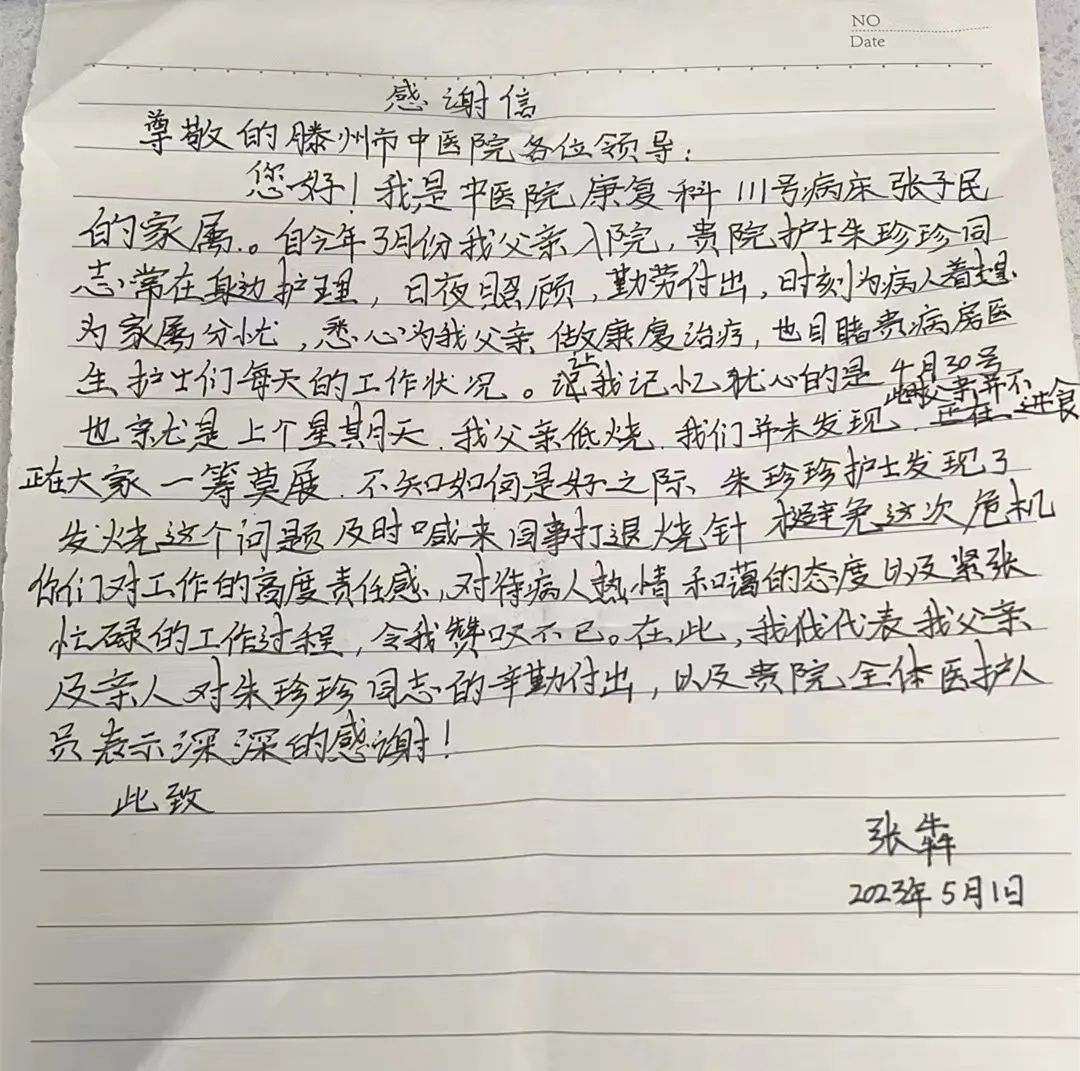 NO
Date
感谢信
尊敬的滕州市中医院各位领导:
您好!我是中医院康复科111号病床张子民
的家属.。自今年3月份我父亲入院,贵院护士朱珍珍同
志常在身边护理,日夜照顾,勤劳付出,时刻为病人着想
为家属分忧,悉心为我父亲做康复治疗,也目睹贵病房医
生护士们每天的工作状况。让我记忆犹心的是4月30号
也就是上个星期天.我父亲低烧.我们并未发现.此时父亲并不进食
正在大家一筹莫展.不知如何是好之际、朱珍珍护士发现了
发烧这个问题及时喊来同事打退烧针 避免这次危机
你们对工作的高度责任感,对待病人热情和蔼的态度以及紧张
忙碌的工作过程,令我赞叹不已。在此,我代表我父亲
及亲人对朱珍珍同志的辛勤付出,以及贵院全体医护人
员表示深深的感谢!
此致
张犇
2023年5月1日